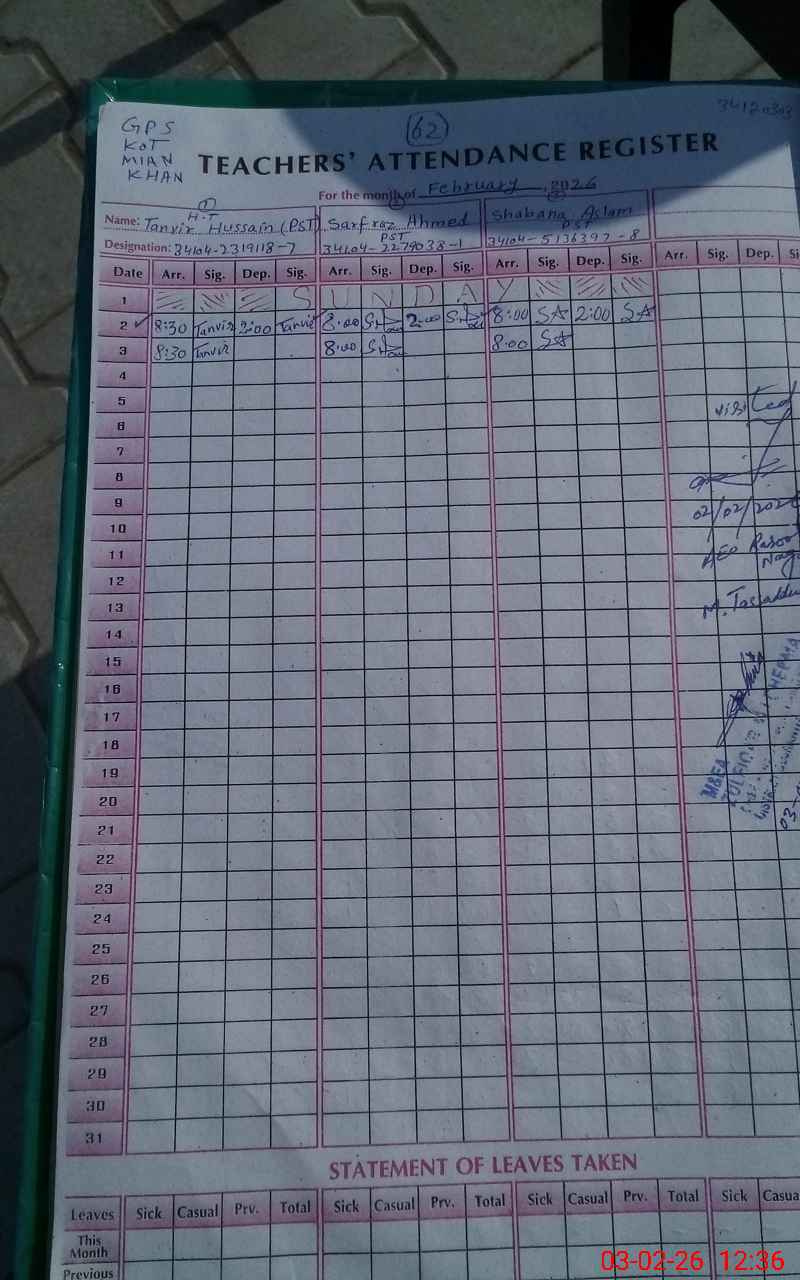 34120303
GPS
KOT
MIAN
KHAN
62
TEACHERS' ATTENDANCE REGISTER
For the month of February, 2026
1 H.T
Name: Tanvir Hussain (PST) Sarfraz Ahmed Shabana Aslam
PST PST
Designation: 34104-2319118-7 34104-2279038-1 34104-5136397-8
Date Arr. Sig. Dep. Sig. Arr. Sig. Dep. Sig. Arr. Sig. Dep. Sig. Arr. Sig. Dep.
1 SUNDAY
2 8:30 Tanvir 2:00 Tanvir 8:00 2:00 8:00 SA 2:00 SA
3 8:30 Tanvir 8:00 8:00 SA
4
5
visited
6
7
8
9
02/02/202
10
11
AEO
12
13
M.
14
15
16
17
18
19
MEA
20
21
03-
22
23
24
25
26
27
28
29
30
31
STATEMENT OF LEAVES TAKEN
Leaves Sick Casual Prv. Total Sick Casual Prv. Total Sick Casual Prv. Total Sick Casua
This
Month
Previous
03-02-26 12:36